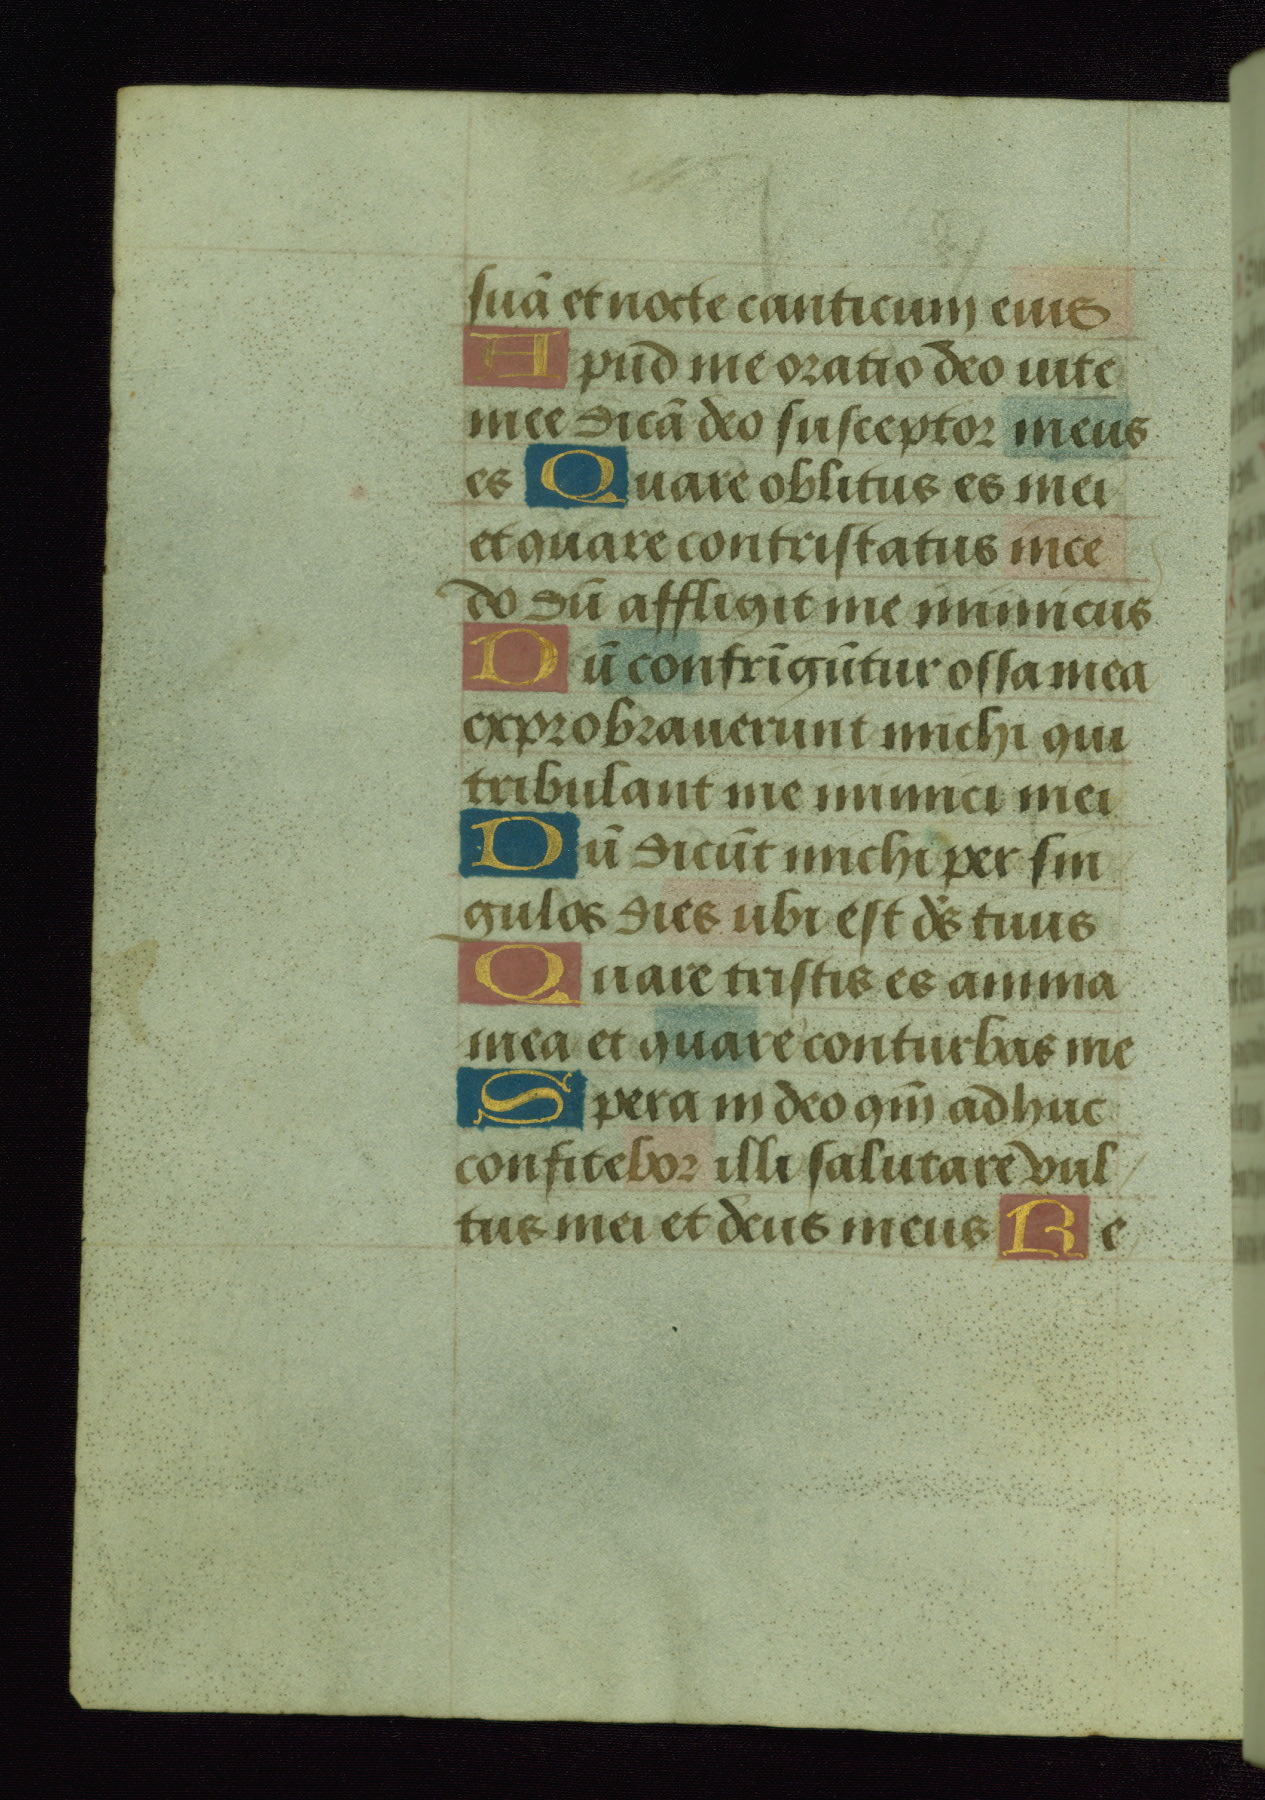 suā et nocte canticum eius
Apud me oratio deo uite
mee dicā deo susceptor meus
es Quare oblitus es mei
et quare contristatus ince
do dū affligit me inimicus
Dū confrīgūtur ossa mea
exprobrauerunt michi qui
tribulant me inimici mei
Dū dicūt michi per sin
gulos dies ubi est ds̄ tuus
Quare tristis es anima
mea et quare conturbas me
Spera in deo qm̄ adhuc
confitebor illi salutare vul
tus mei et deus meus Re